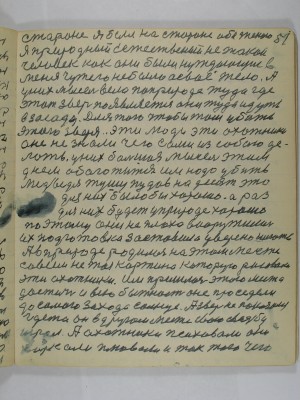 стороне я был на стороне обвтенно 51
я природный естественный не такой
человек как они были нуждающие в
меня чутего небыло а свае тело. А
у них мысел вела по природе туда где
этот зверь появляется они туда идуть
в засаду. Для того чтобы том убить
этого зверя... Эти люди эти охотники
оне не знали чего сами из собою де-
лоть, у них большая мысел этим
днем обогатится им надо убить
медведя тушу пудов на десят это
для них было бы хорошо. а раз
для них будет у природе хорошо
поэтому они не плохо вооружилися
их подготовка заставила уверено
А в природе родился на этом месте
совсем не та картина которую рисовали
эти охотники. Им пришлось этого места
достич и всю бытность оне просидели
до самого захода солнце. А зверь показал
где то он в другом месте свою свадьбу
играл. А охотники психовали оне
курили плювали и так того чего